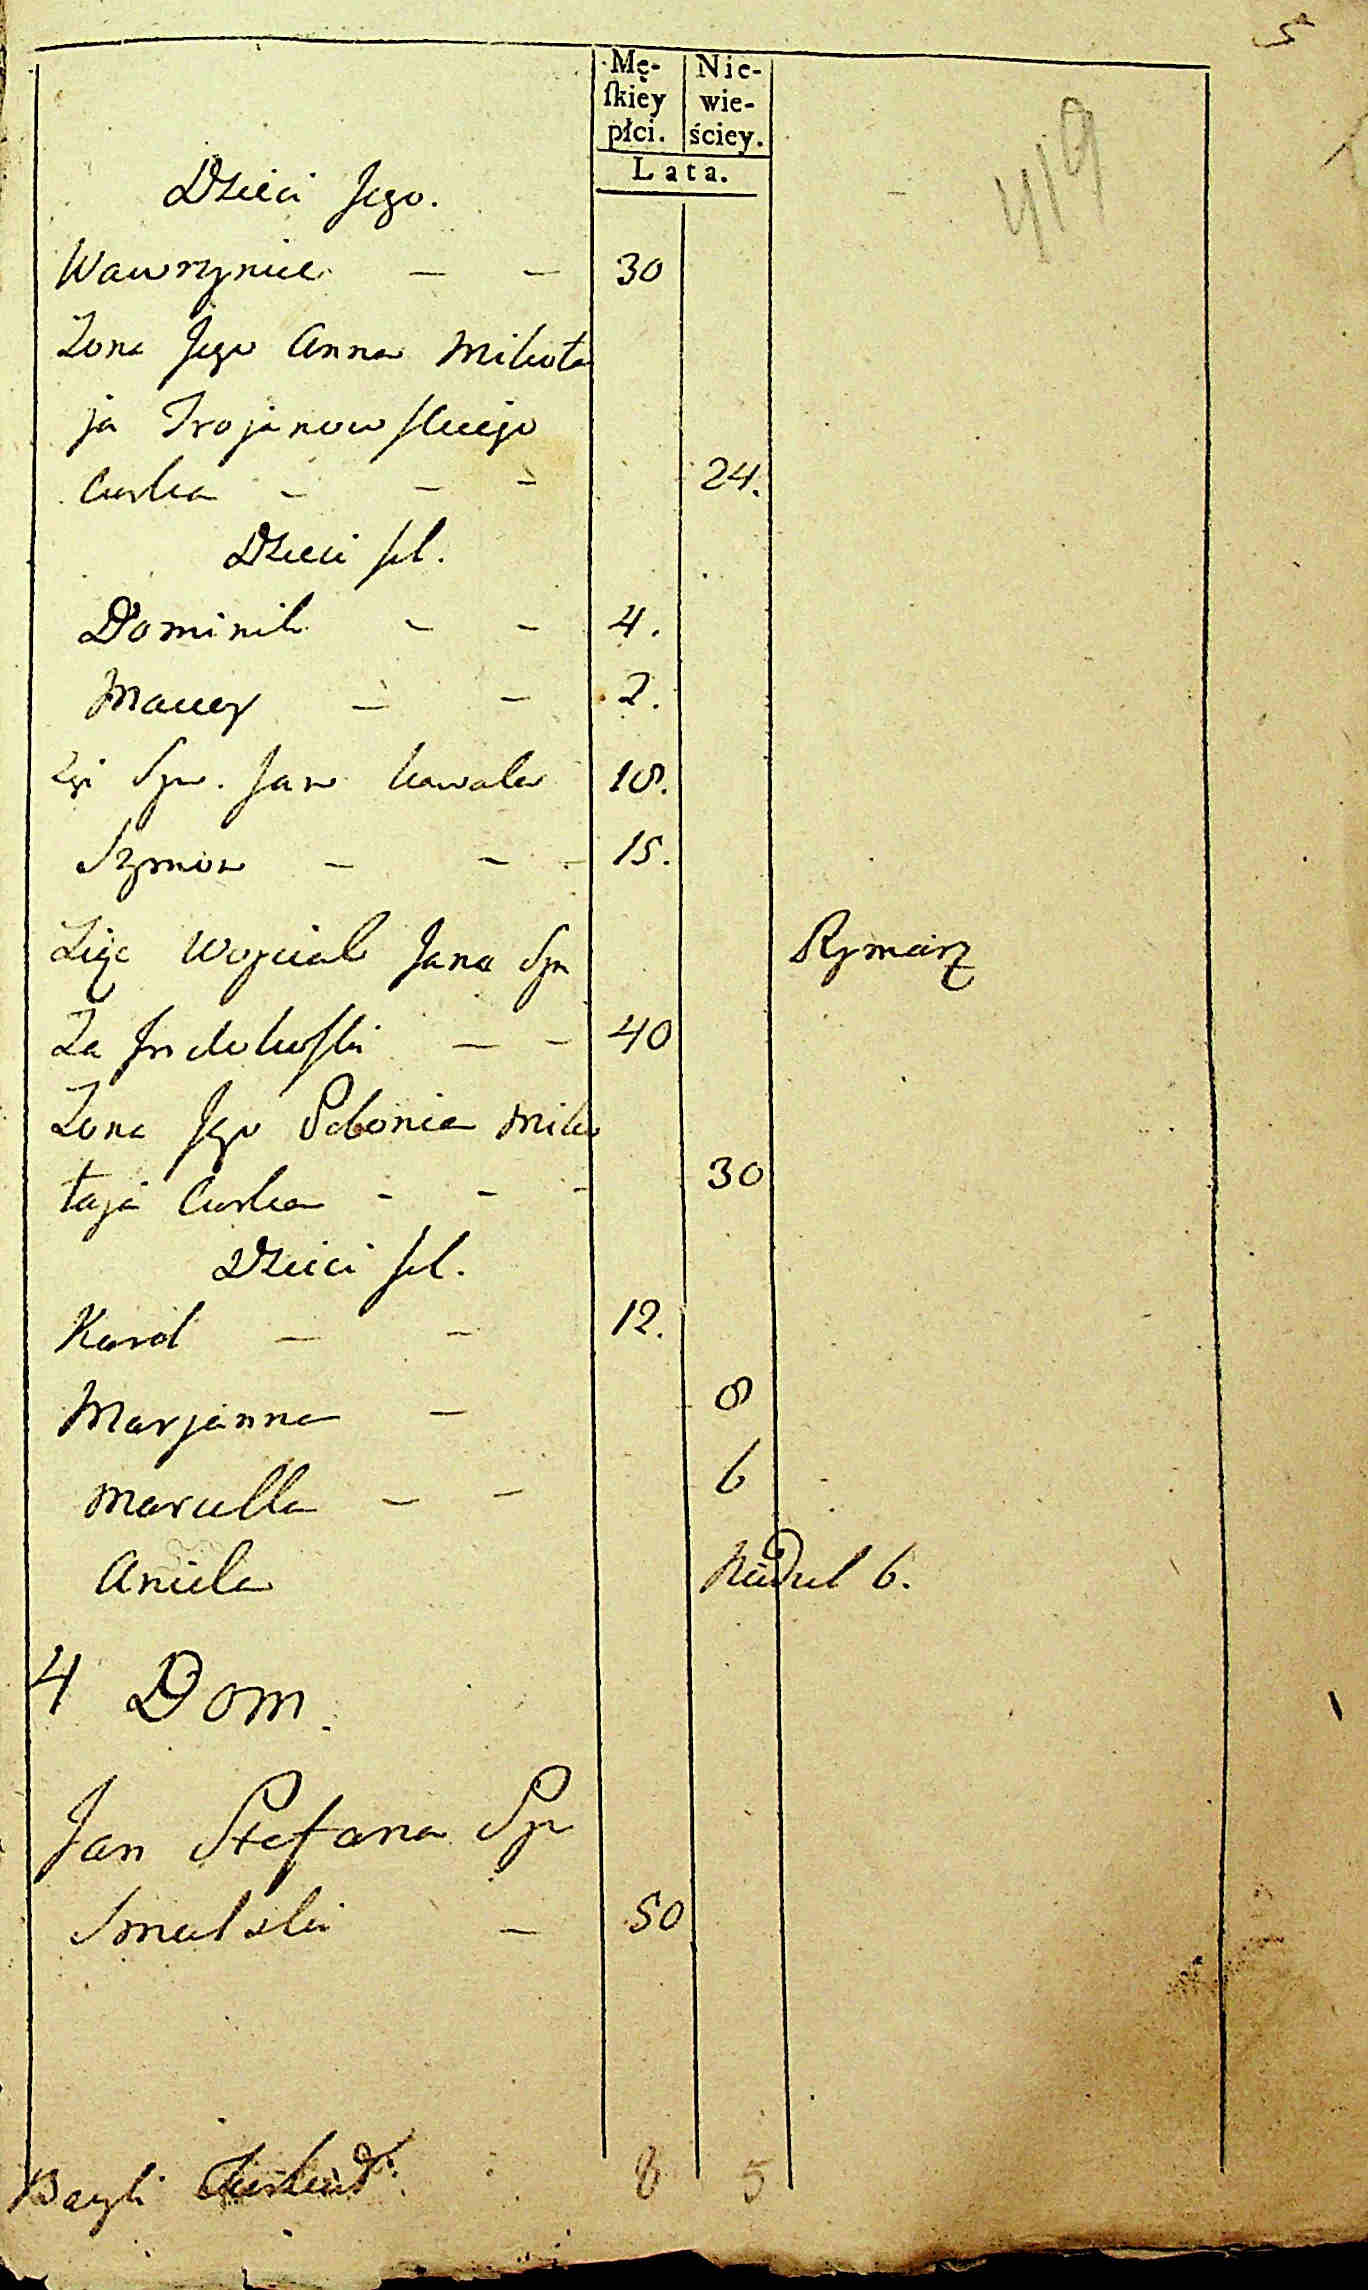 5
419
Mę-
ſkiey
płci.
Nie-
wie-
ściey.
Lata.
Dzieci Jego.
Wawrzyniec - - 30
Żona Jego Anna Mikoła
ja Trojanowskiego
Curka - - - 24.
Dzieci ich.
Dominik - - 4.
Maciey - - 2.
Syn. Jan Kawaler 18.
Szymon - - - 15.
Wojciech Jana Syn Rymarz
- - 40
Żona Jego Polonia Miko
łaja Curka - - - 30
Dzieci ich.
Karol - - 12.
Marjanna - 8
Marcella - - 6
Aniela Niedziel 6.
4 Dom.
Jan Stefana Syn
Smulski - 50
8 5